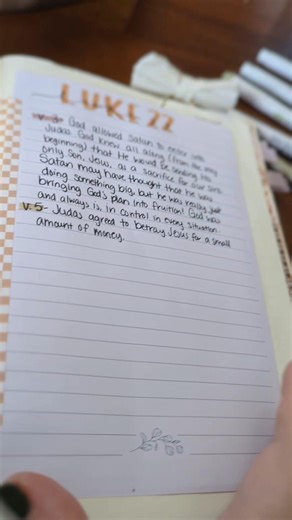 LUKE 22
God allowed Satan to enter into
Judas. God knew all along (from the very
beginning) that He would be sending His
only Son, Jesus, as a sacrifice for our sins.
Satan may have thought that he was
doing something big, but he was really just
bringing God's plan into fruition! God was
and always is in control in every situation.
V.5- Judas agreed to betray Jesus for a small
amount of money.